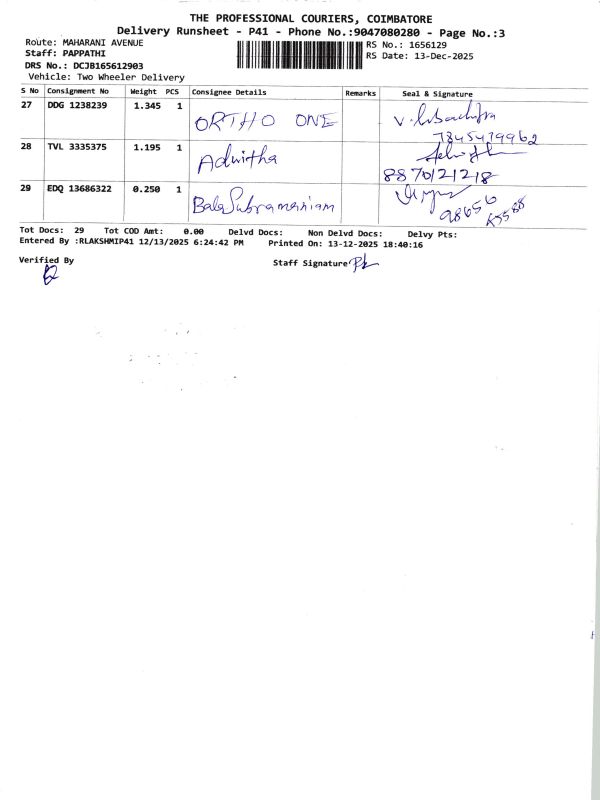 THE PROFESSIONAL COURIERS, COIMBATORE
Delivery Runsheet - P41 - Phone No.:9047080280 - Page No.:3
Route: MAHARANI AVENUE
RS No.: 1656129
Staff: PAPPATHI
RS Date: 13-Dec-2025
DRS No.: DCJB165612903
Vehicle: Two Wheeler Delivery
S No Consignment No Weight PCS Consignee Details Remarks Seal & Signature
27 DDG 1238239 1.345 1 ORTHO ONE
7845479962
28 TVL 3335375 1.195 1 Adwitha
8870121218
29 EDQ 13686322 0.250 1 BalaSubramaniam
98656
Tot Docs: 29 Tot COD Amt: 0.00 Delvd Docs: Non Delvd Docs: Delvy Pts:
Entered By :RLAKSHMIP41 12/13/2025 6:24:42 PM Printed On: 13-12-2025 18:40:16
Verified By Staff Signature